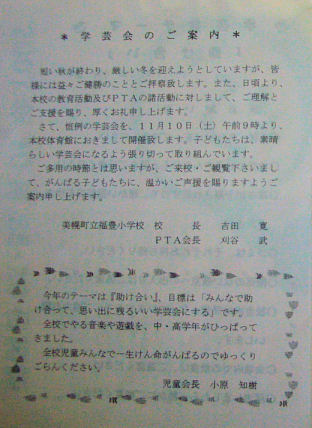 ＊ 学芸会のご案内 ＊
短い秋が終わり、厳しい冬を迎えようとしていますが、皆
様には益々ご健勝のこととご拝察致します。また、日頃より、
本校の教育活動及びＰＴＡの諸活動に対しまして、ご理解と
ご支援を賜り、厚くお礼申し上げます。
さて、恒例の学芸会を、１１月１０日（土）午前９時より、
本校体育館におきまして開催致します。子どもたちは、素晴
らしい学芸会になるよう張り切って取り組んでいます。
ご多用の時節とは思いますが、ご来校・ご観覧下さいまし
て、がんばる子どもたちに、温かいご声援を賜りますようご
案内申し上げます。
美幌町立福豊小学校 校 長 吉田 寛
ＰＴＡ会長 刈谷 武
今年のテーマは『助け合い』、目標は「みんなで助
け合って、思い出に残るいい学芸会にする」です。
全校でやる音楽や遊戯を、中・高学年がひっぱって
きました。
全校児童みんなで一生けん命がんばるのでゆっくり
ごらんください。
児童会長 小原 知樹